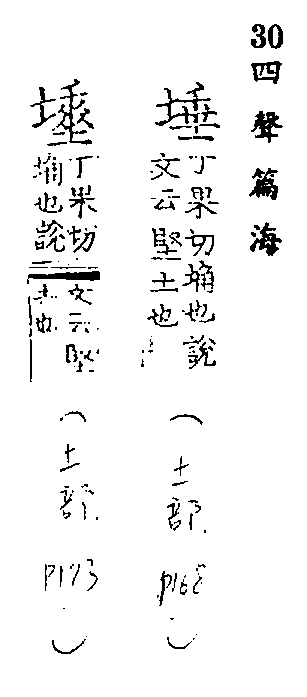 30 四聲篇海
埵
丁果切埇也說
文云堅土也
(土部 p168)
丁果切
埇也說
文云堅
土也
(土部 p173)